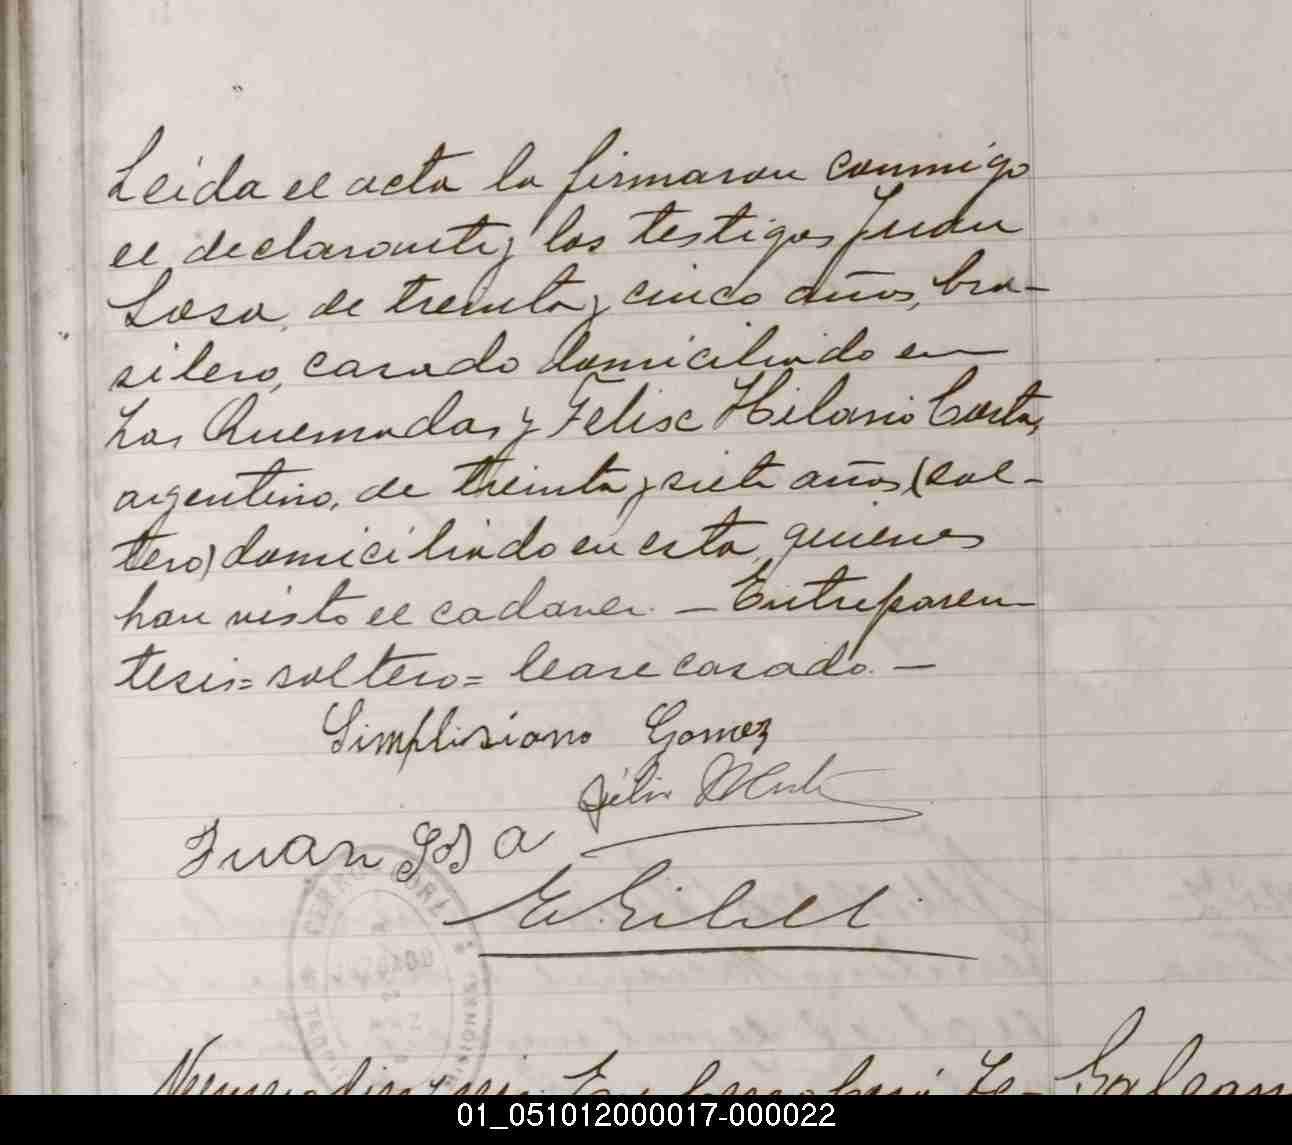 Leida el acta la firmaron conmigo
el declarante y los testigos Juan
Sosa, de treinta y cinco años, bra-
silero, casado domiciliado en
Las Quemadas y Felisc Hilario Costa,
argentino, de treinta y siete años (sol-
tero) domiciliado en esta, quienes
han visto el cadaver. — Entreparen-
tesis = soltero = lease casado. —
Simplisiano Gomez
Félix
Juan Sosa
CERRO CORA
MISIONES
01_051012000017-000022